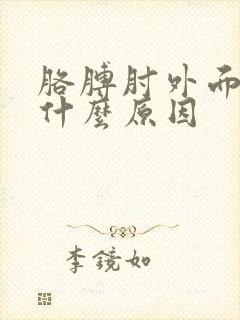 胳膊肘外而
什麼原因
李鏡如